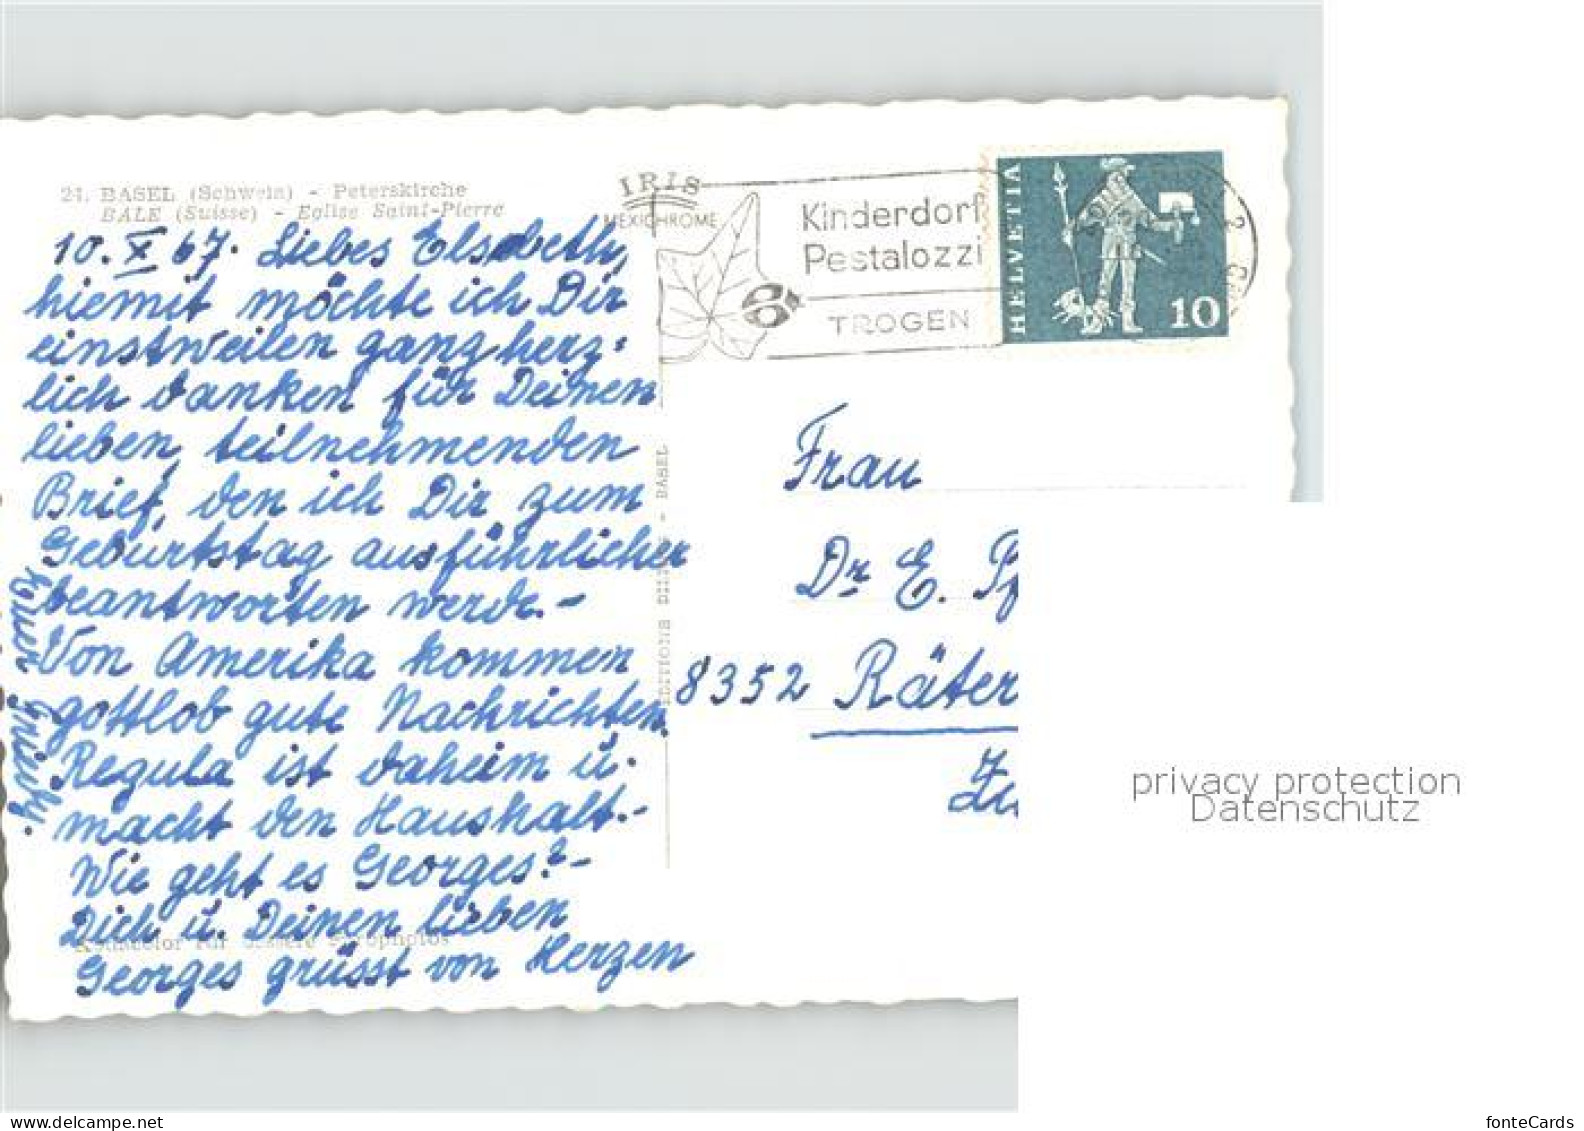 24. BASEL (Schweiz) - Peterskirche
BALE (Suisse) - Eglise Saint-Pierre
IRIS
MEXICHROME
Kinderdorf
Pestalozzi
TROGEN
HELVETIA
10
10. X 67. Liebes Elsabeth,
hiemit möchte ich Dir
einstweilen ganz herz=
lich danken für Deinen
lieben, teilnehmenden
Brief, den ich Dir zum
Geburtstag ausführlicher
beantworten werde.-
Von Amerika kommen
gottlob gute Nachrichten.
Regula ist daheim u.
macht den Haushalt.-
Wie geht es Georges?-
Dich u. Deinen lieben
Georges grüsst von Herzen
EDITIONS - BASEL
Frau
Dr E. Pf
8352 Räter
Zu
privacy protection
Datenschutz
fonteCards